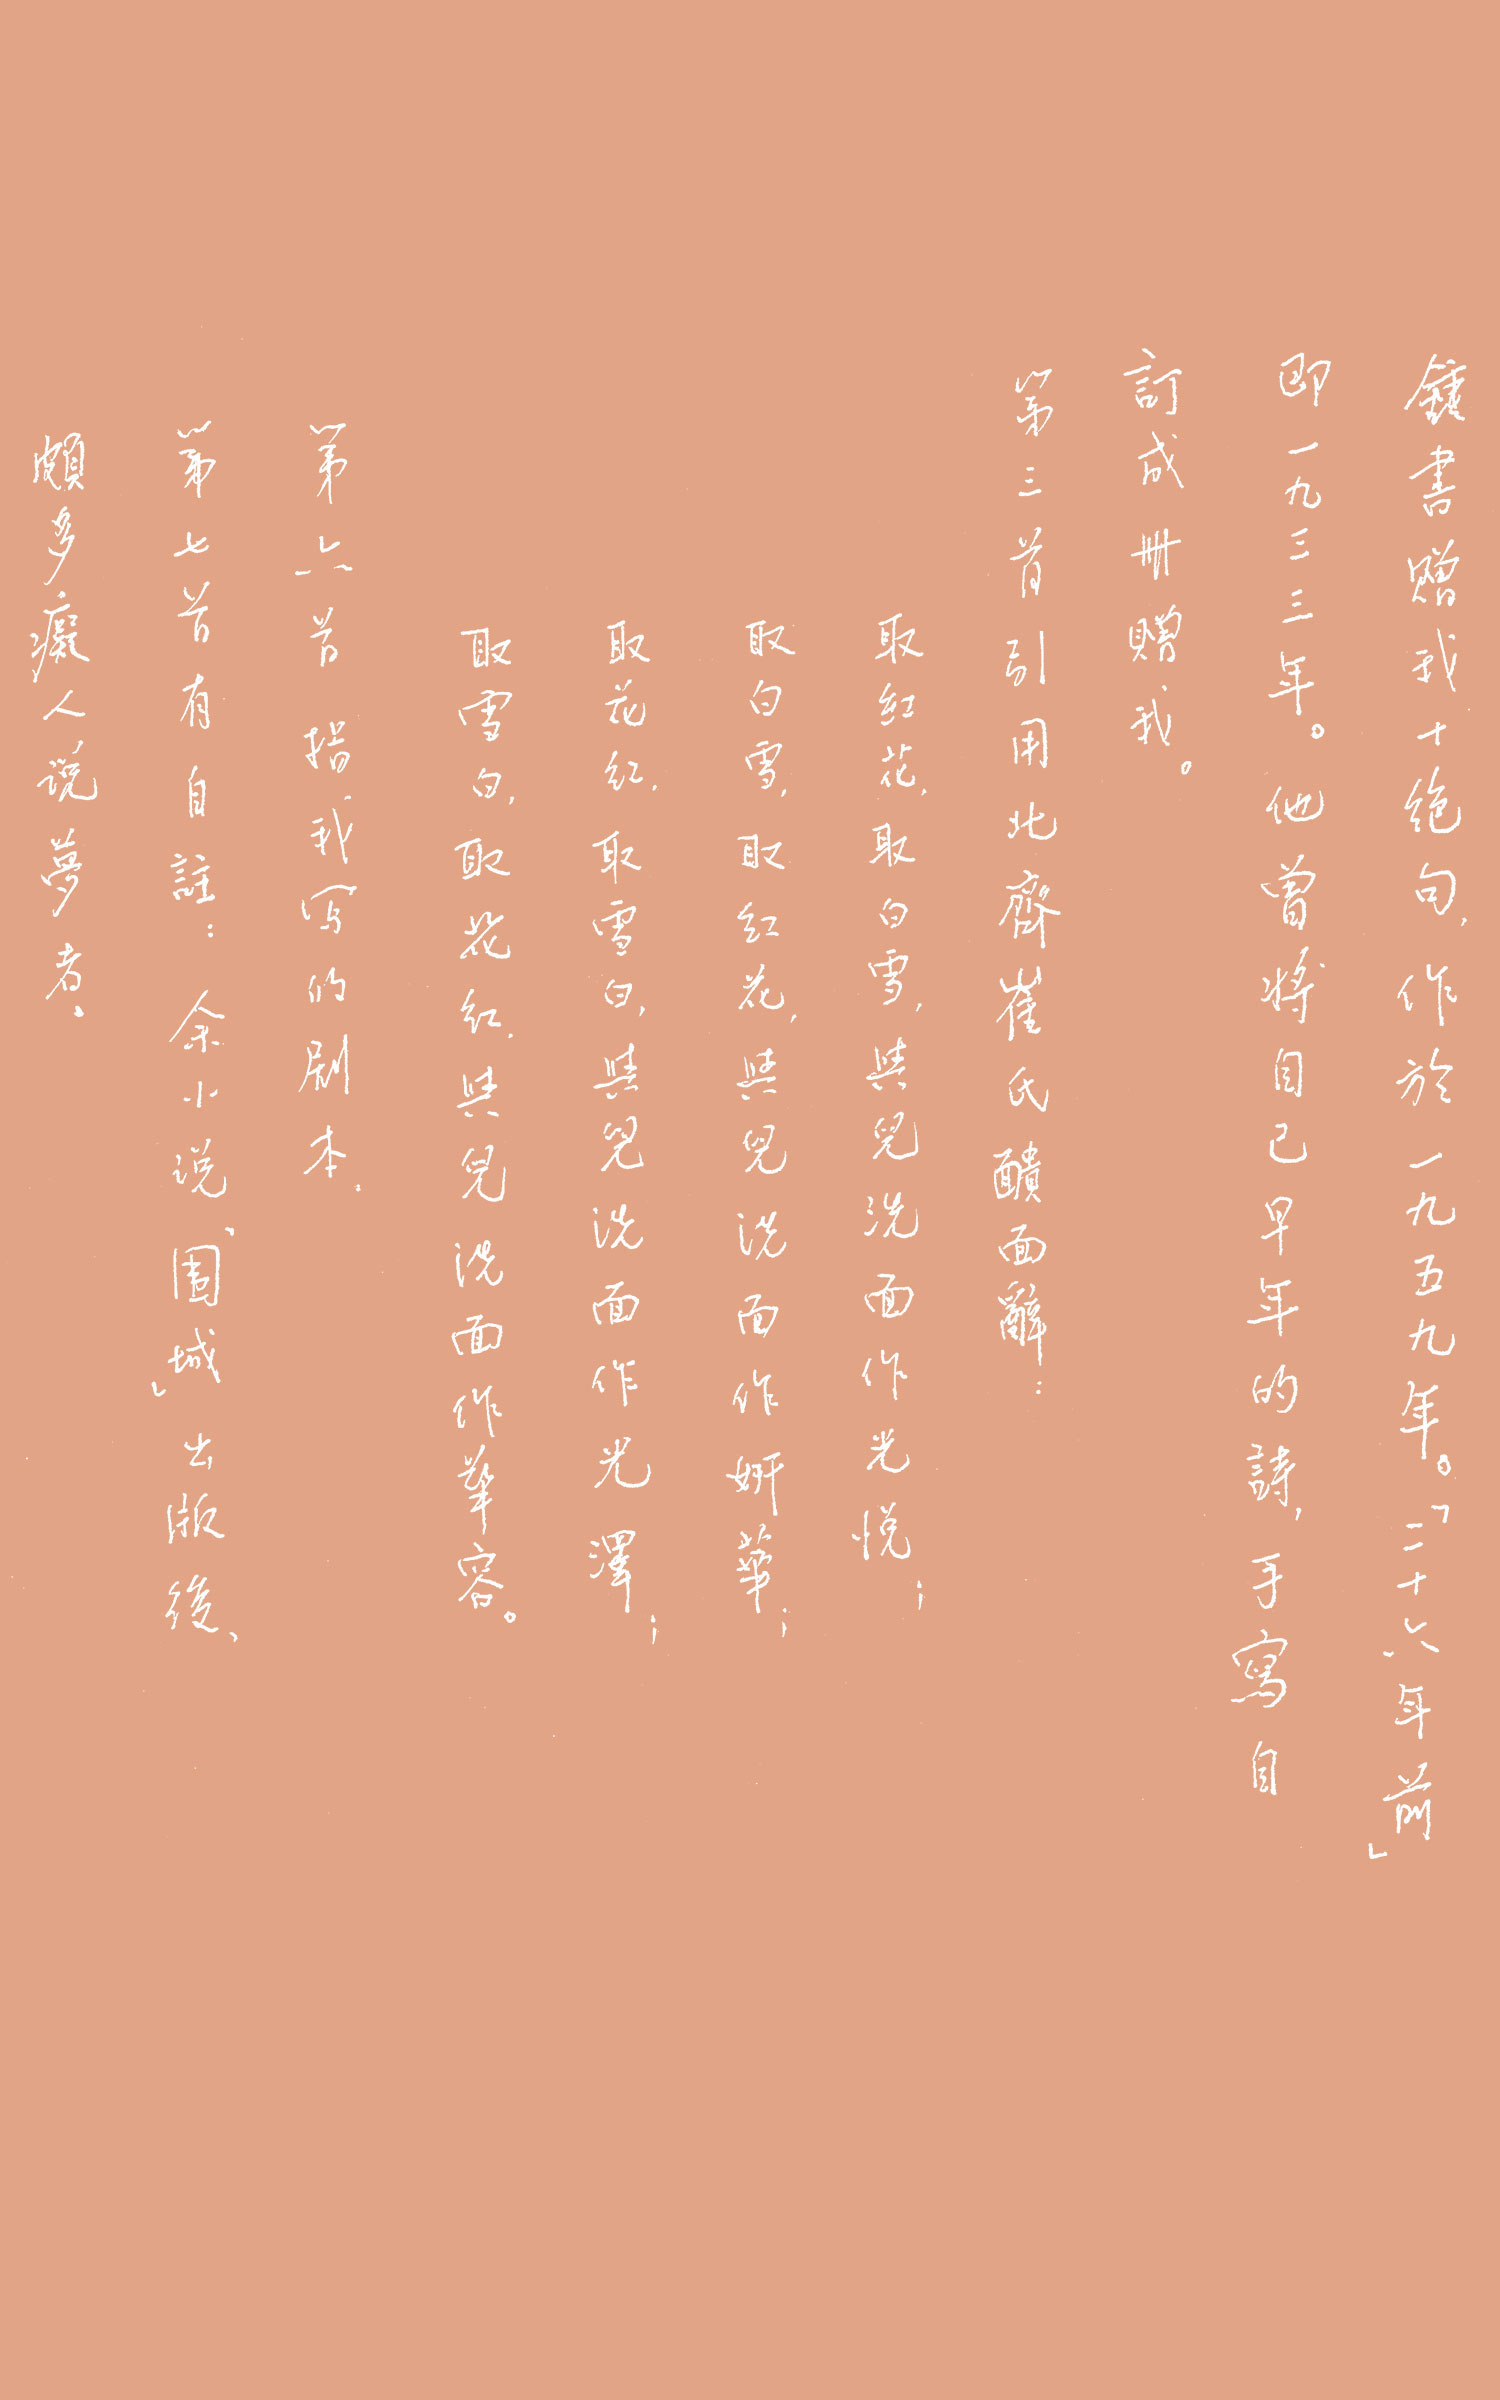 鍾書贈我十絶句,作於一九五九年。「二十六年前」
即一九三三年。他曾將自己早年的詩,手寫自
訂成冊贈我。
第三首引用北齊崔氏靧面辭：
取紅花,取白雪,與兒洗面作光悅；
取白雪,取紅花,與兒洗面作妍華；
取花紅,取雪白,與兒洗面作光澤；
取雪白,取花紅,與兒洗面作華容。
第六首指我写的剧本.
第七首有自註：余小说「围城」出版後、
頗多癡人说夢者、